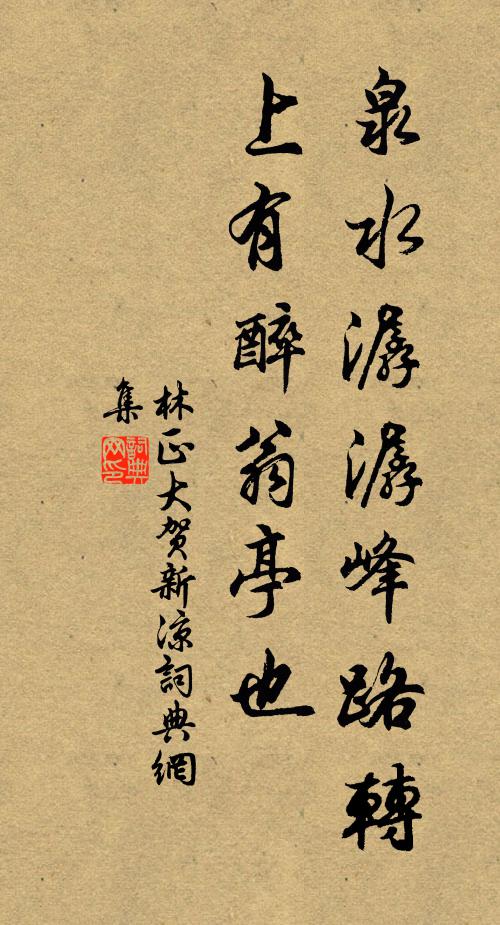 泉水潺潺峰路轉
上有醉翁亭也
林正大賀新涼詞典網
集
詞典網印